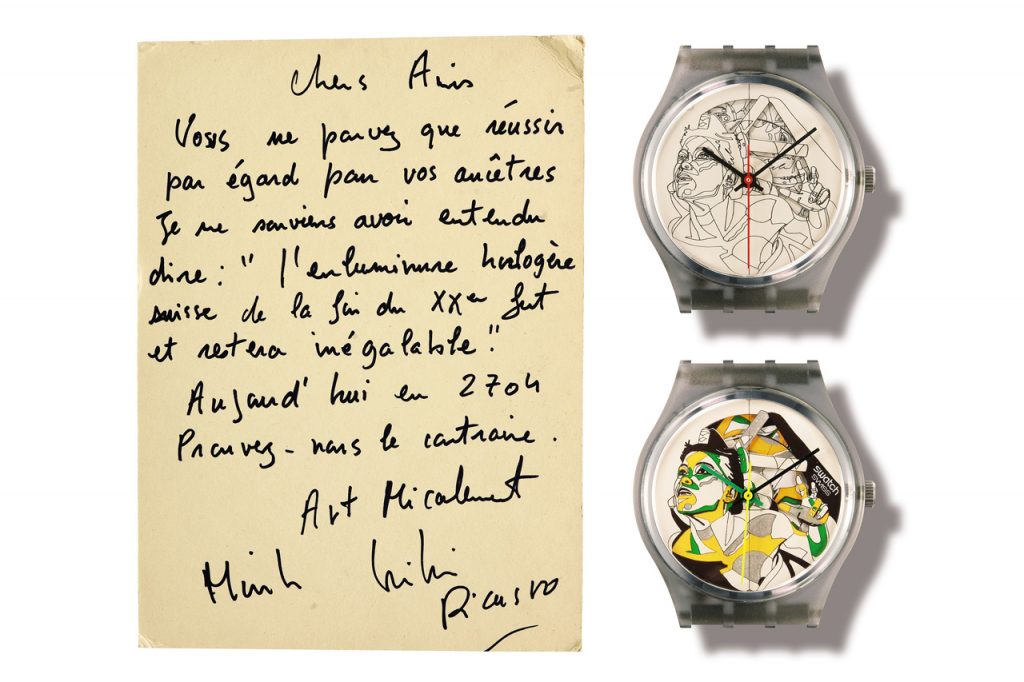 Chers Amis
Vous ne pouvez que réussir
par égard pour vos ancêtres
Je me souviens avoir entendu
dire : " l'enluminure horlogère
suisse de la fin du XXem fut
et restera inégalable."
Aujourd'hui en 2704
Prouvez-nous le contraire.
Art Micalement
Kiki
Picasso
swatch
SWISS